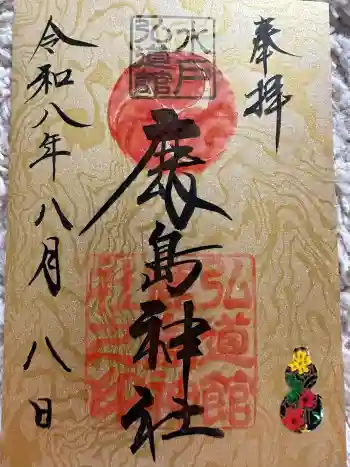 奉拝
水戸
弘道館
鹿島神社
弘道館
令和八年八月八日